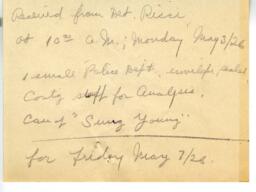 Received from Det. Ricci
at 10 00 A.M; Monday May 3/26
1 small Police Dept. envelope, sealed
stuff for Analysis.
Case of "Sung Young"
for Friday May 7/26.